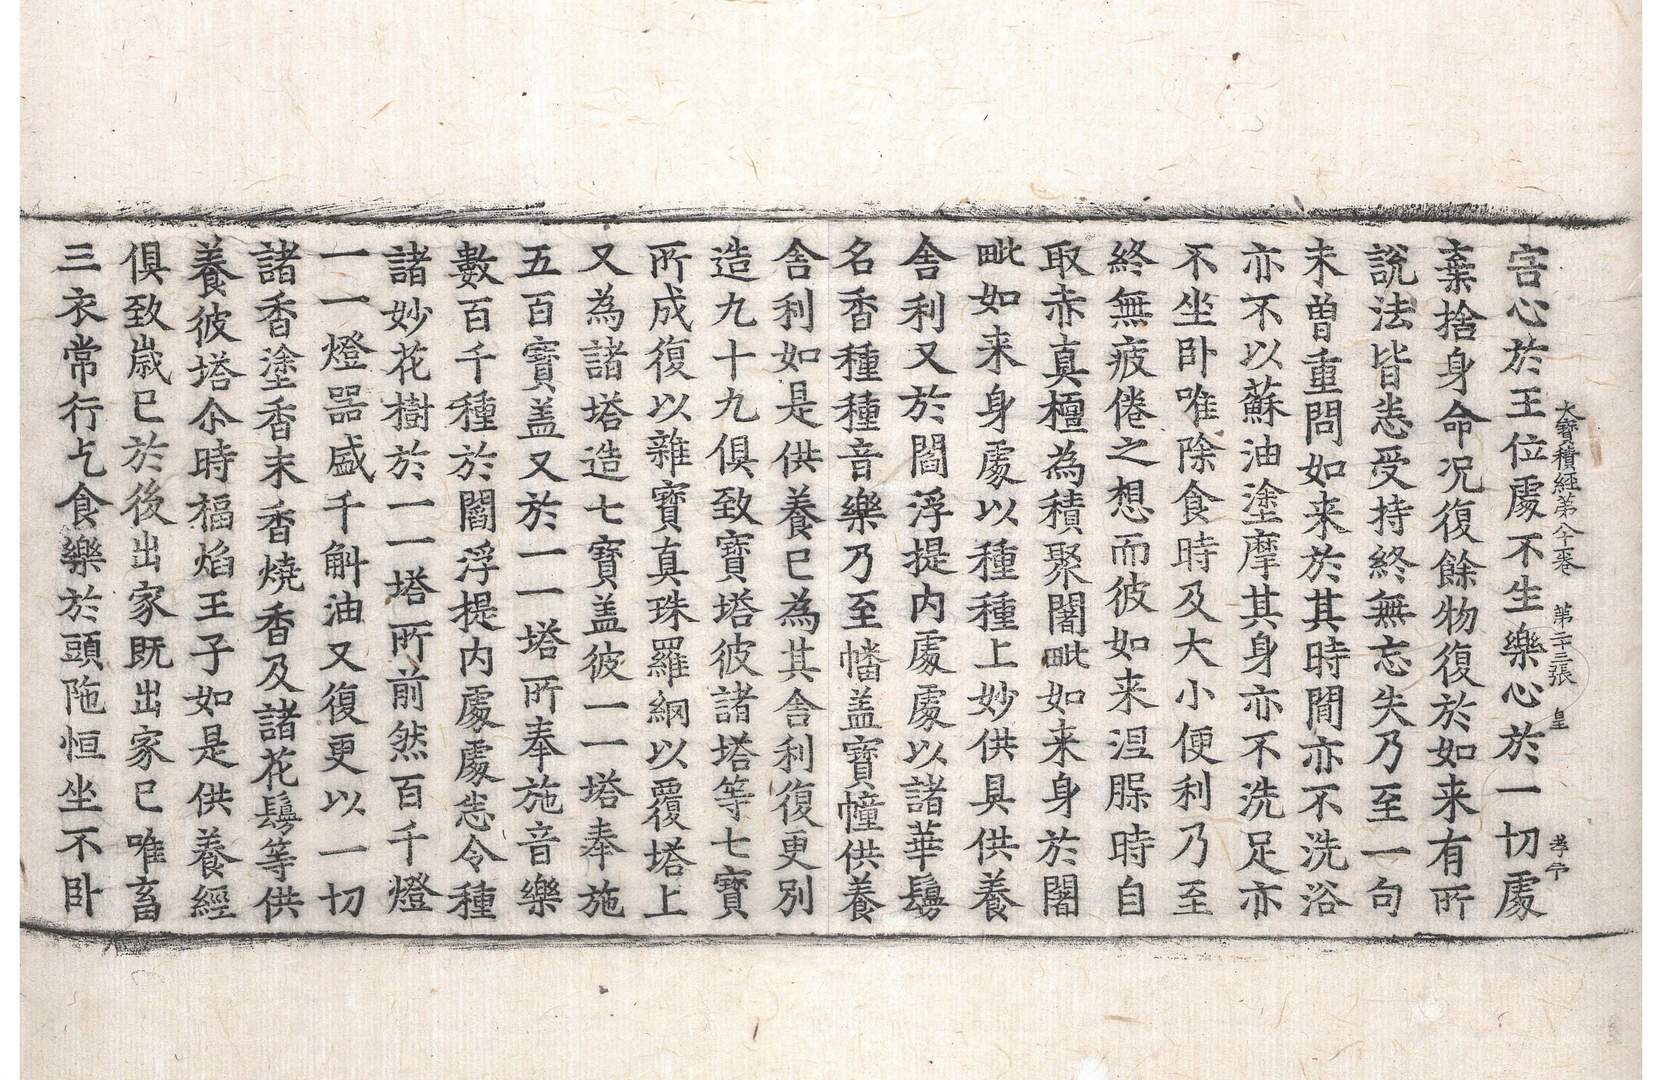 大寶積經第八十卷 第二十三張 皇 孝守
害心於王位處不生樂心於一切處
棄捨身命况復餘物復於如来有所
說法皆悉受持終無忘失乃至一句
未曽重問如来於其時間亦不洗浴
亦不以蘇油塗摩其身亦不洗足亦
不坐卧唯除食時及大小便利乃至
終無疲倦之想而彼如来涅脲時自
取赤真檀為積聚闍毗如来身於閻
毗如来身處以種種上妙供具供養
舎利又於閻浮提内處處以諸華鬘
名香種種音樂乃至幡盖寶幢供養
舎利如是供養已為其舎利復更別
造九十九俱致寶塔彼諸塔等七寶
所成復以雜寶真珠羅網以覆塔上
又為諸塔造七寶盖彼一一塔奉施
五百寶盖又於一一塔所奉施音樂
數百千種於閻浮提内處處悉令種
諸妙花樹於一一塔所前然百千燈
一一燈器盛千斛油又復更以一切
諸香塗香末香燒香及諸花鬘等供
養彼塔尒時福焰王子如是供養經
俱致歳已於後出家既出家已唯畜
三衣常行乞食樂於頭陁恒坐不卧